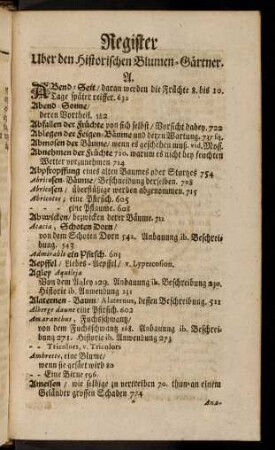 Register
Uber den Historischen Blumen-Gärtner.
A.
ABend-Seit / daran werden die Früchte 8. bis 10.
Tage später reiffer. 632
Abend-Sonne /
deren Vortheil. 122
Abfallen der Früchte von sich selbst / Vorsicht dabey. 722
Ablegen der Feigen-Bäume und deren Wartung.
Abmosen der Bäume / wenn es geschehen muß. vid. Moß.
Abnehmen der Früchte 710. warum es nicht bey feuchten
Wetter vorzunehmen 714
Abpfropffung eines alten Baumes oder Sturzes 754
Abricosen-Bäume / Beschneidung derselben. 728
Abricosen / überflüßige werden abgenommen. 715
Abricotée, eine Pfirsch. 605
- - - eine Pflaume. 608
Abzwicken / bezwicken derer Bäume. 711
Acacia, Schoten Dorn /
von dem Schoten Dorn 542. Anbauung ib. Beschreibung.
543
Admirable ein Pfirsch. 603
Aepffel / Liebes-Aepffel / v. Lypercosion.
Agley Aquileja
Von dem Agley 129. Anbauung ib. Beschreibung 230.
Historie ib. Anwendung 231
Alaternen-Baum / Alaternus, dessen Beschreibung. 512
Alberge daune eine Pfirsch. 602
Amaranthus, Fuchsschwantz /
von dem Fuchsschwantz 268. Anbauung ib. Beschreibung
271. Historie ib. Anwendung 273
- - Tricolnr, v. Tricolors
Ambrette, eine Blume /
wenn sie gesäet wird 80
- - Eine Birne 596.
Ameisen / wie selbige zu vertreiben 70. thun an einem
Geländer grossen Schaden 774
Ana-